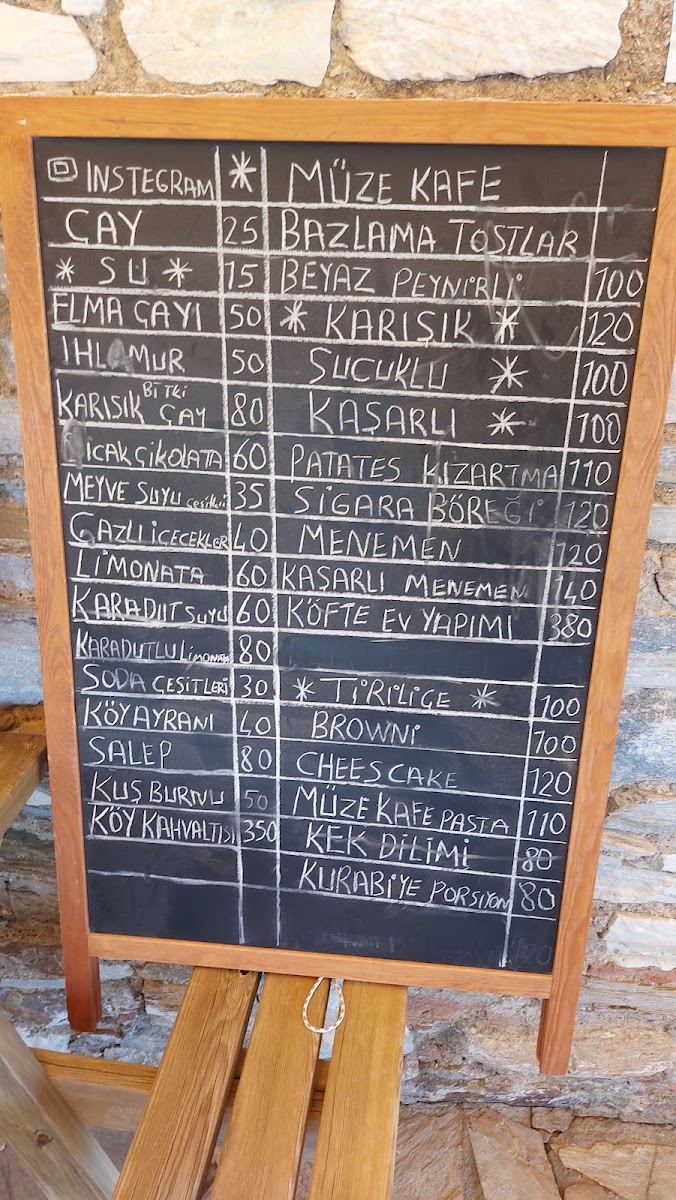 INSTEGRAM *
ÇAY 25
* SU * 15
ELMA ÇAYI 50
IHLAMUR 50
KARIŞIK BiTKi ÇAY 80
SICAK ÇiKOLATA 60
MEYVE SUYU çeşitleri 35
GAZLI iÇECEKLER 40
LiMONATA 60
KARADUT SUYU 60
KARADUTLU LiMONATA 80
SODA ÇEŞiTLERi 30
KÖY AYRANI 40
SALEP 80
KUŞ BURNU 50
KÖY KAHVALTISI 350
MÜZE KAFE
BAZLAMA TOSTLAR
BEYAZ PEYNiRLi 100
* KARIŞIK * 120
SUCUKLU * 100
KAŞARLI * 100
PATATES KIZARTMA 110
SiGARA BÖREĞi 120
MENEMEN 120
KAŞARLI MENEMEN 140
KÖFTE EV YAPIMI 380
* TiRiLiÇE * 100
BROWNi 100
CHEES CAKE 120
MÜZE KAFE PASTA 110
KEK DiLiMi 80
KURABiYE PORSiYON 80